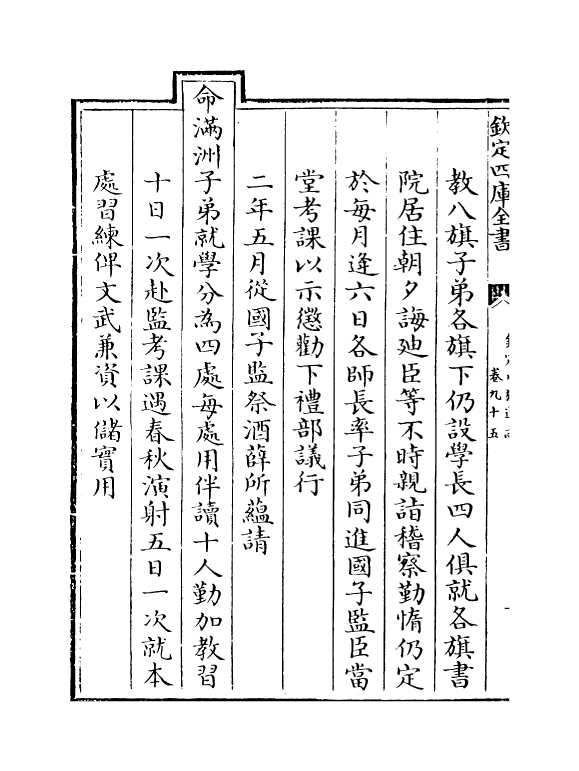 欽定四庫全書
卷九十五
教八旗子弟各旗下仍設學長四人俱就各旗書
院居住朝夕誨廸臣等不時親詣稽察勤惰仍定
於每月逢六日各師長率子弟同進國子監臣當
堂考課以示懲勸下禮部議行
二年五月從國子監祭酒薛所蘊請
命滿洲子弟就學分為四處每處用伴讀十人勤加教習
十日一次赴監考課遇春秋演射五日一次就本
處習練俾文武兼資以儲實用